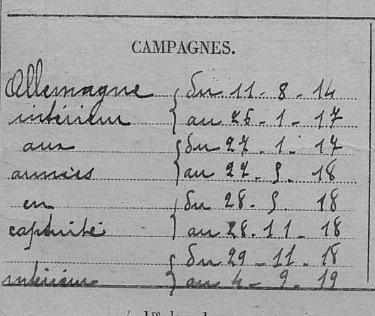 CAMPAGNES.
Allemagne { du 11 - 8 - 14
intérieur { au 26 - 1 - 17
aux { du 27 - 1 - 17
armées { au 27 - 5 - 18
en { du 28 - 5 - 18
captivité { au 28 - 11 - 18
{ du 29 - 11 - 18
intérieur { au 4 - 9 - 19